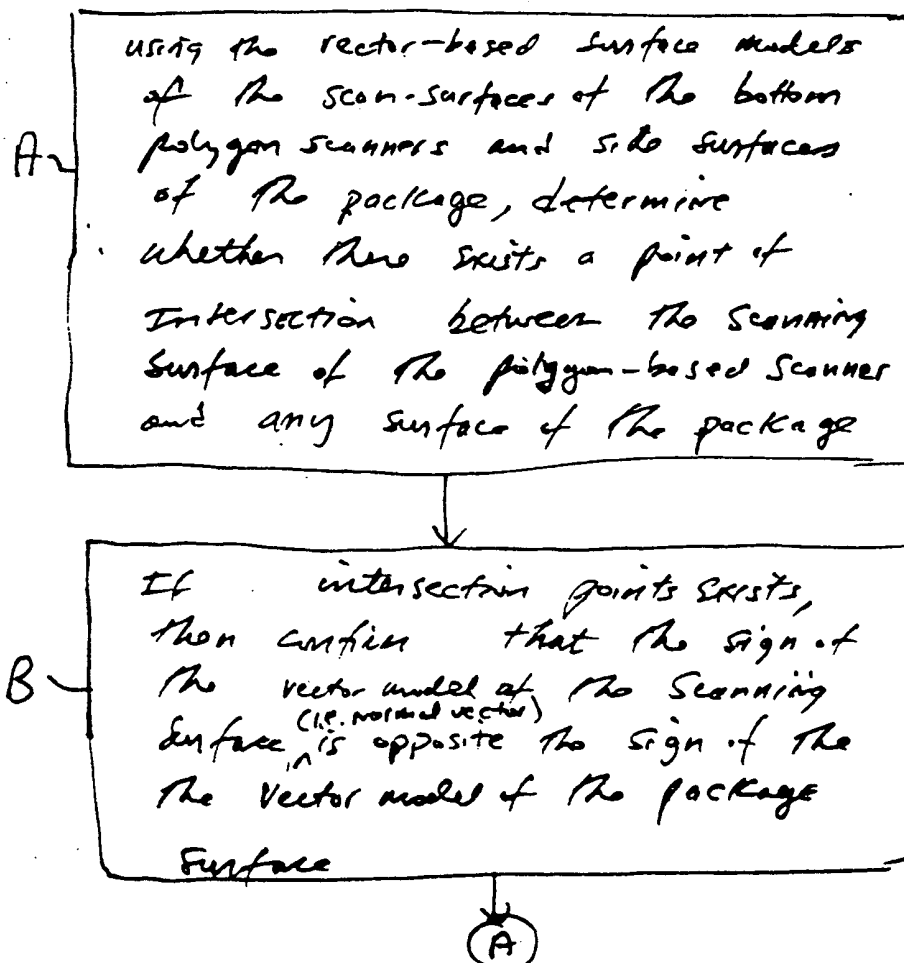 using the vector-based surface models
of the scan-surfaces of the bottom
polygon scanners and side surfaces
of the package, determine
A
whether there exists a point of
Intersection between the scanning
surface of the polygon-based scanner
and any surface of the package
If intersection points exists,
then confirm that the sign of
B
the vector model of the scanning
surface (i.e. normal vector) is opposite the sign of the
the vector model of the package
surface
A